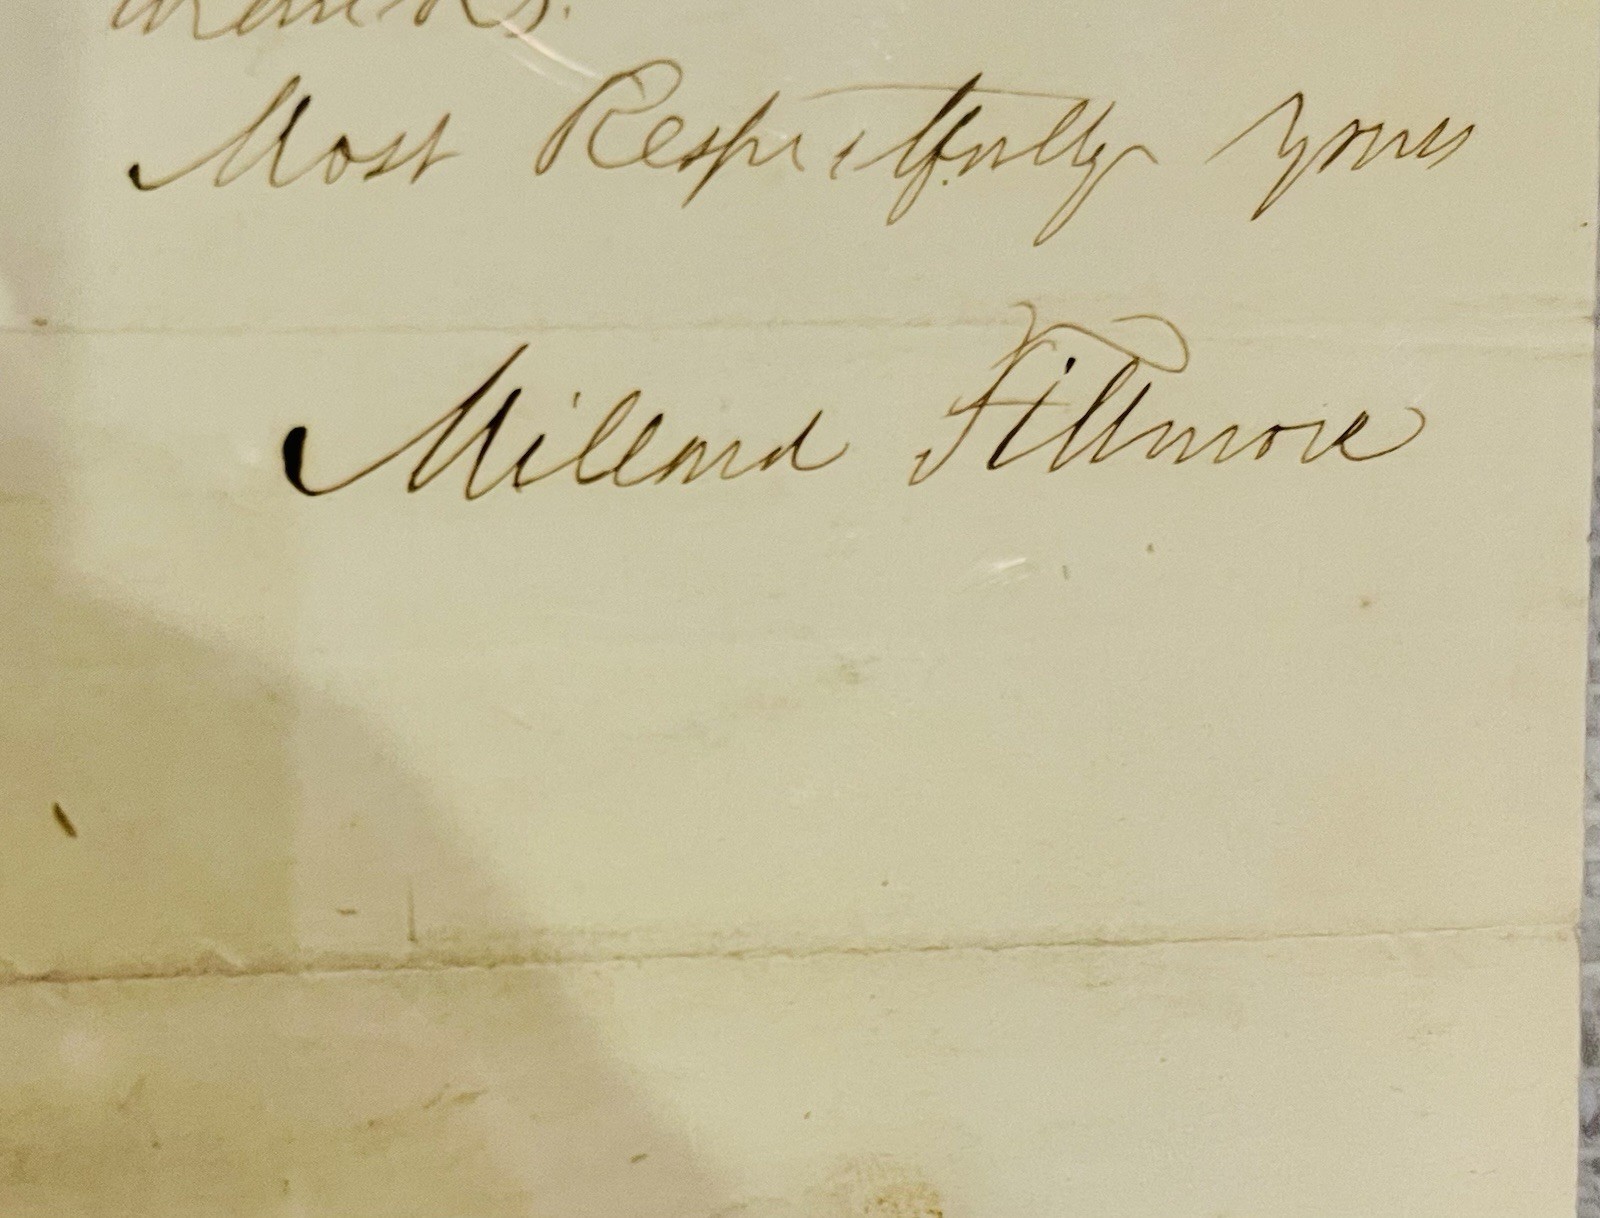 thanks.
Most Respectfully yours
Millard Fillmore